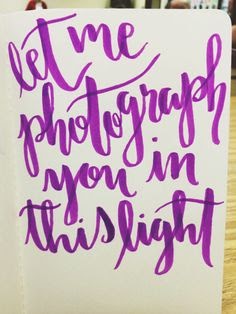 let me
photograph
you in
this light